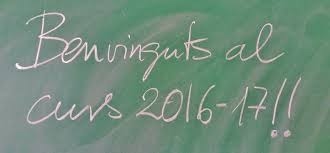 Benvinguts al
curs 2016-17!!